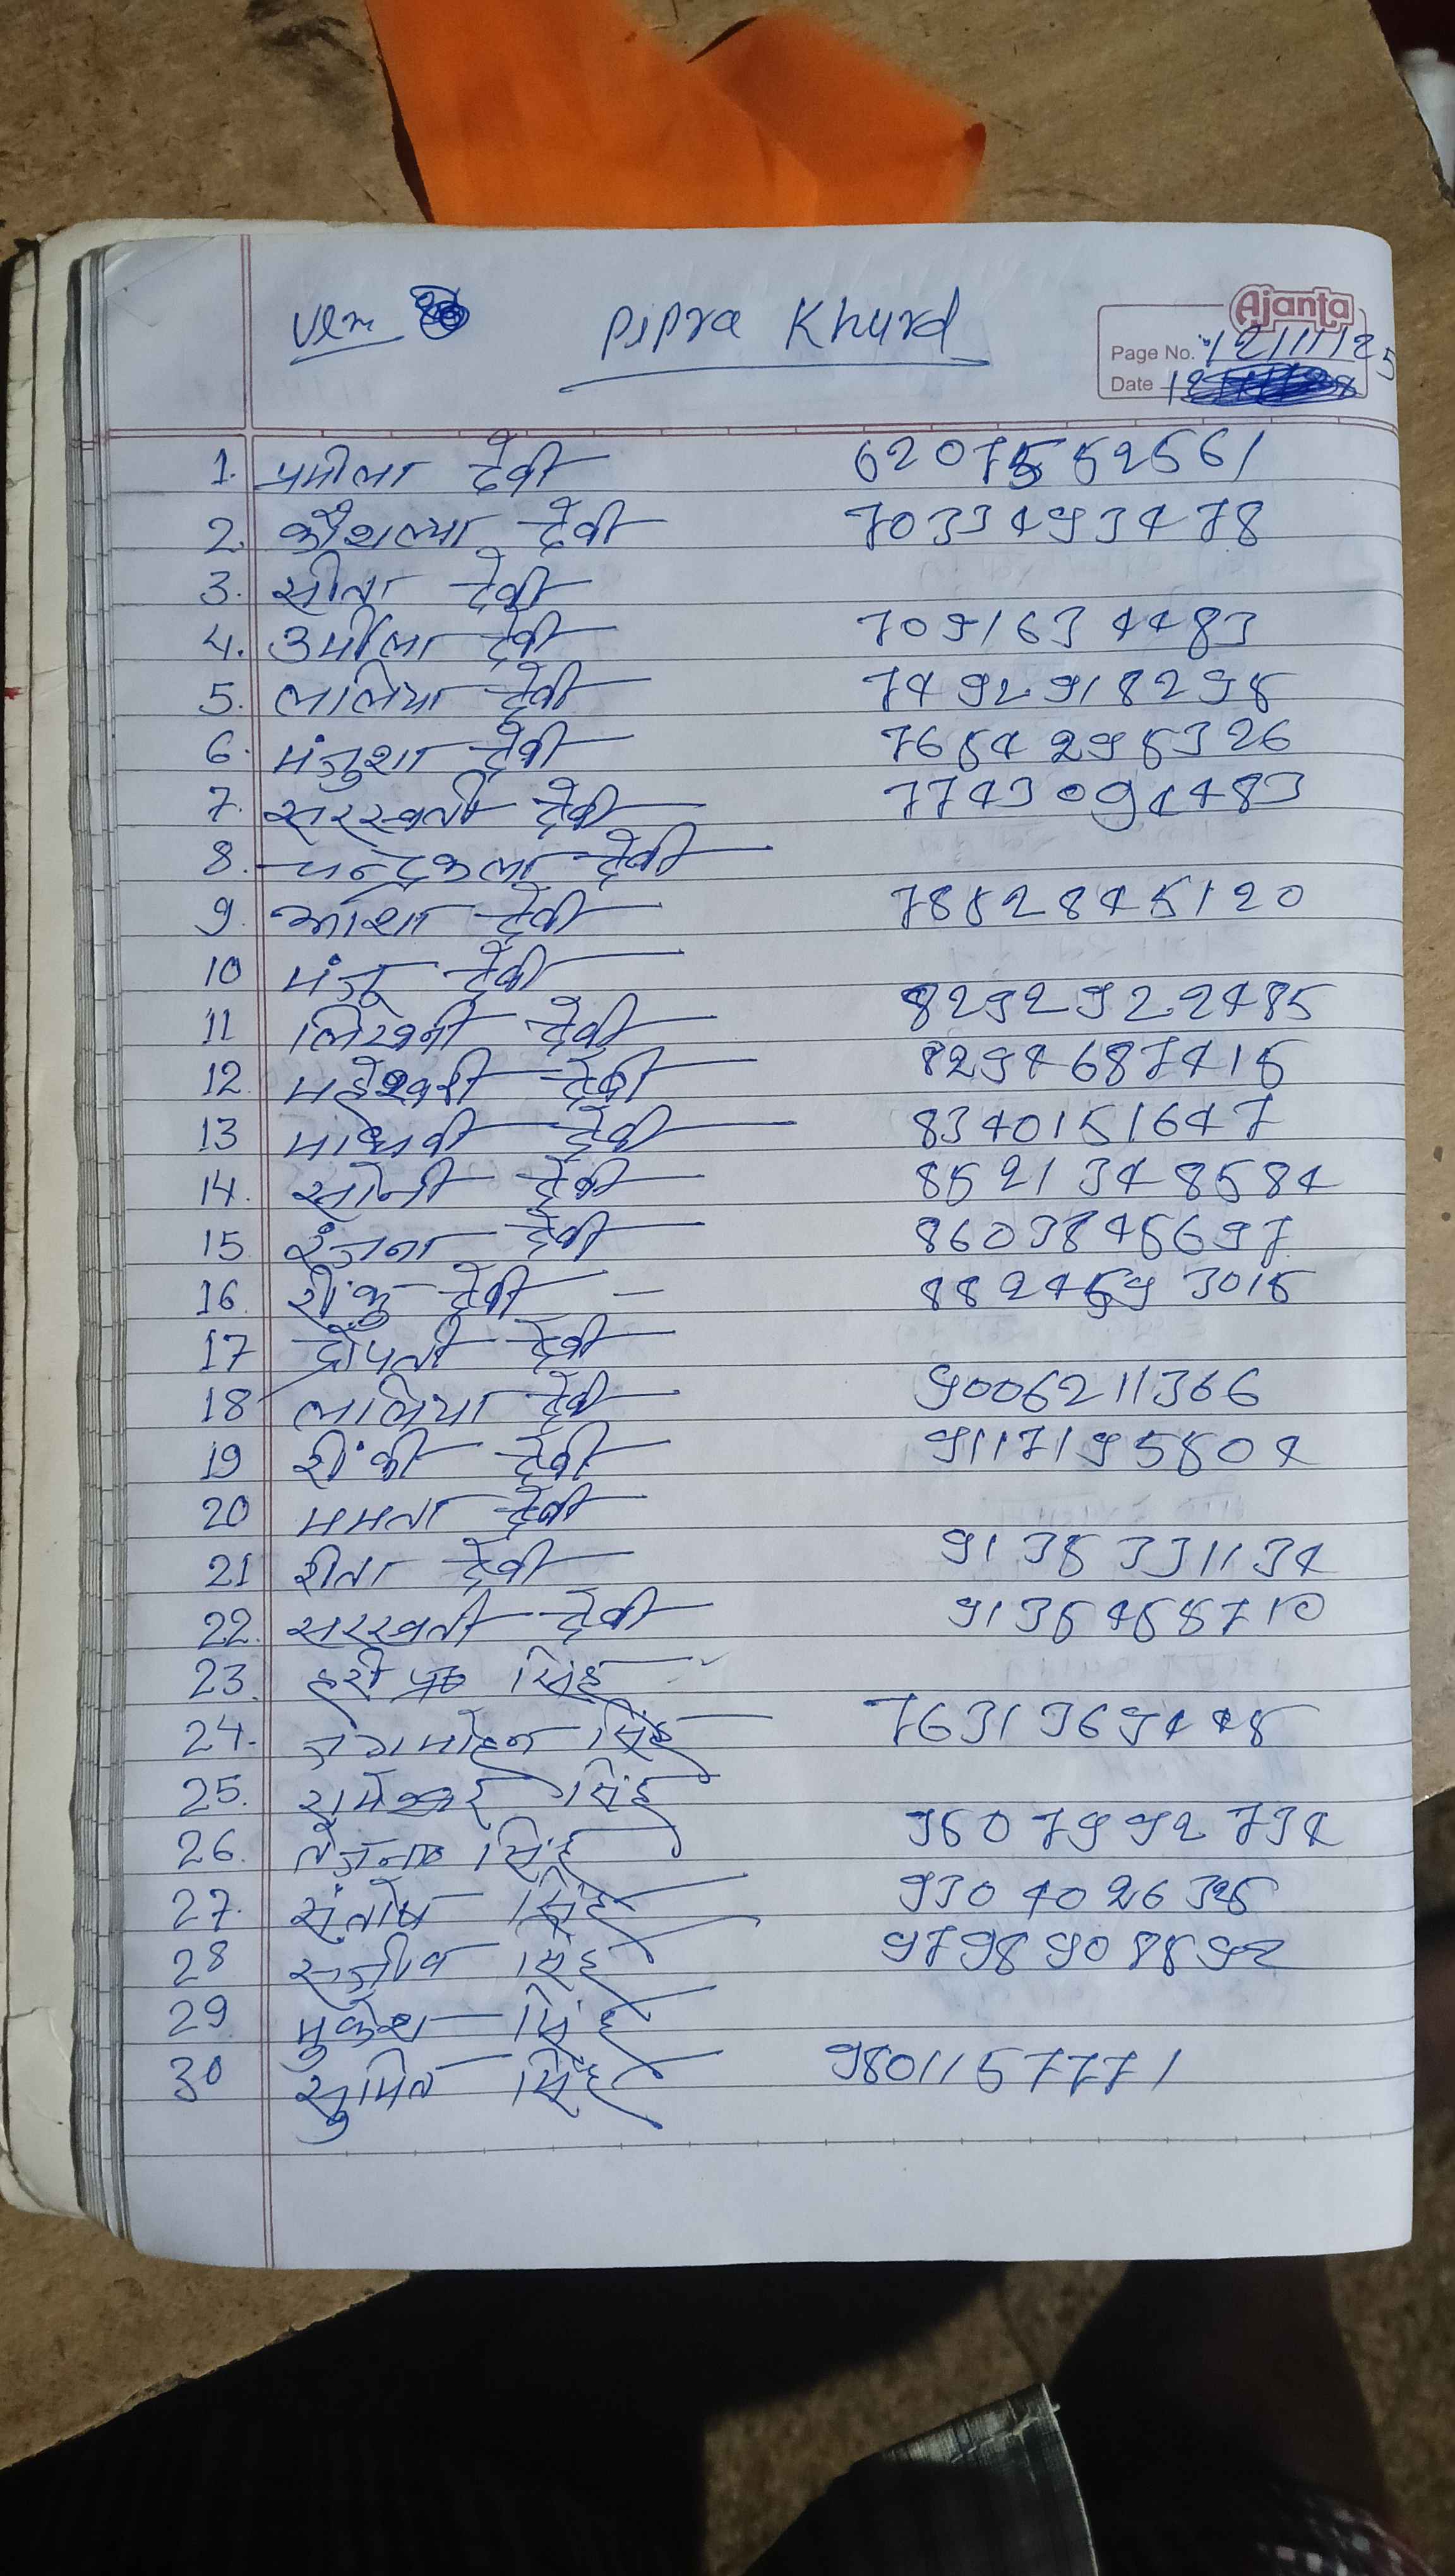 VLM Pipra Khurd
Ajanta
Page No. 12/11/25
Date
1. प्रमीला देवी 6207552561
2. कौशल्या देवी 7033493478
3. सीता देवी
4. उर्मीला देवी 7091634483
5. ललिया देवी 7492918298
6. मंजुशा देवी 7654295326
7. सरस्वती देवी 7743094483
8. चन्द्रकला देवी
9. आशा देवी 7852845120
10 मंजू देवी
11 लिखनी देवी 8292922485
12 महेश्वरी देवी 8294687415
13 माधवी देवी 8340151647
14. सोनी देवी 8521348584
15 रंजना देवी 8603845697
16. रींकु देवी 8824593015
17 द्रौपती देवी
18 ललिया देवी 9006211366
19 रींकी देवी 9117195804
20 ममता देवी
21 रीता देवी 9135331134
22. सरस्वती देवी 9135455710
23. हरी सिंह
24. जगमोहन सिंह 7631369445
25. रामेश्वर सिंह
26. बैजनाथ सिंह 9507992734
27. संतोष सिंह 9304026325
28 राजीव सिंह 9798908892
29 मुकेश सिंह
30 सुमित सिंह 9801157771